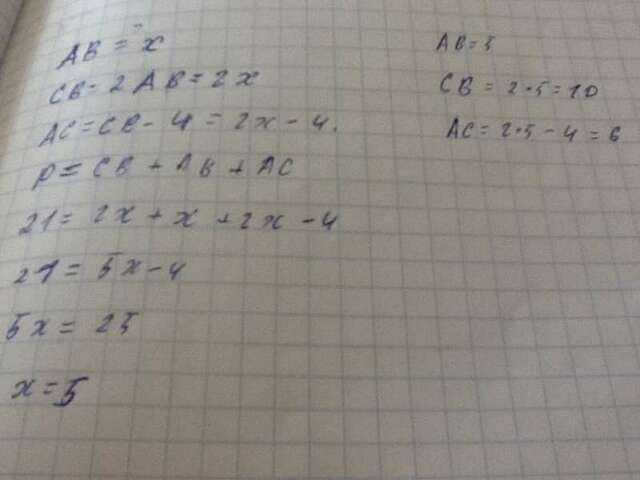 AB = x
CB = 2AB = 2x
AC = CB - 4 = 2x - 4.
P = CB + AB + AC
21 = 2x + x + 2x - 4
21 = 5x - 4
5x = 25
x = 5
AB = 5
CB = 2·5 = 10
AC = 2·5 - 4 = 6